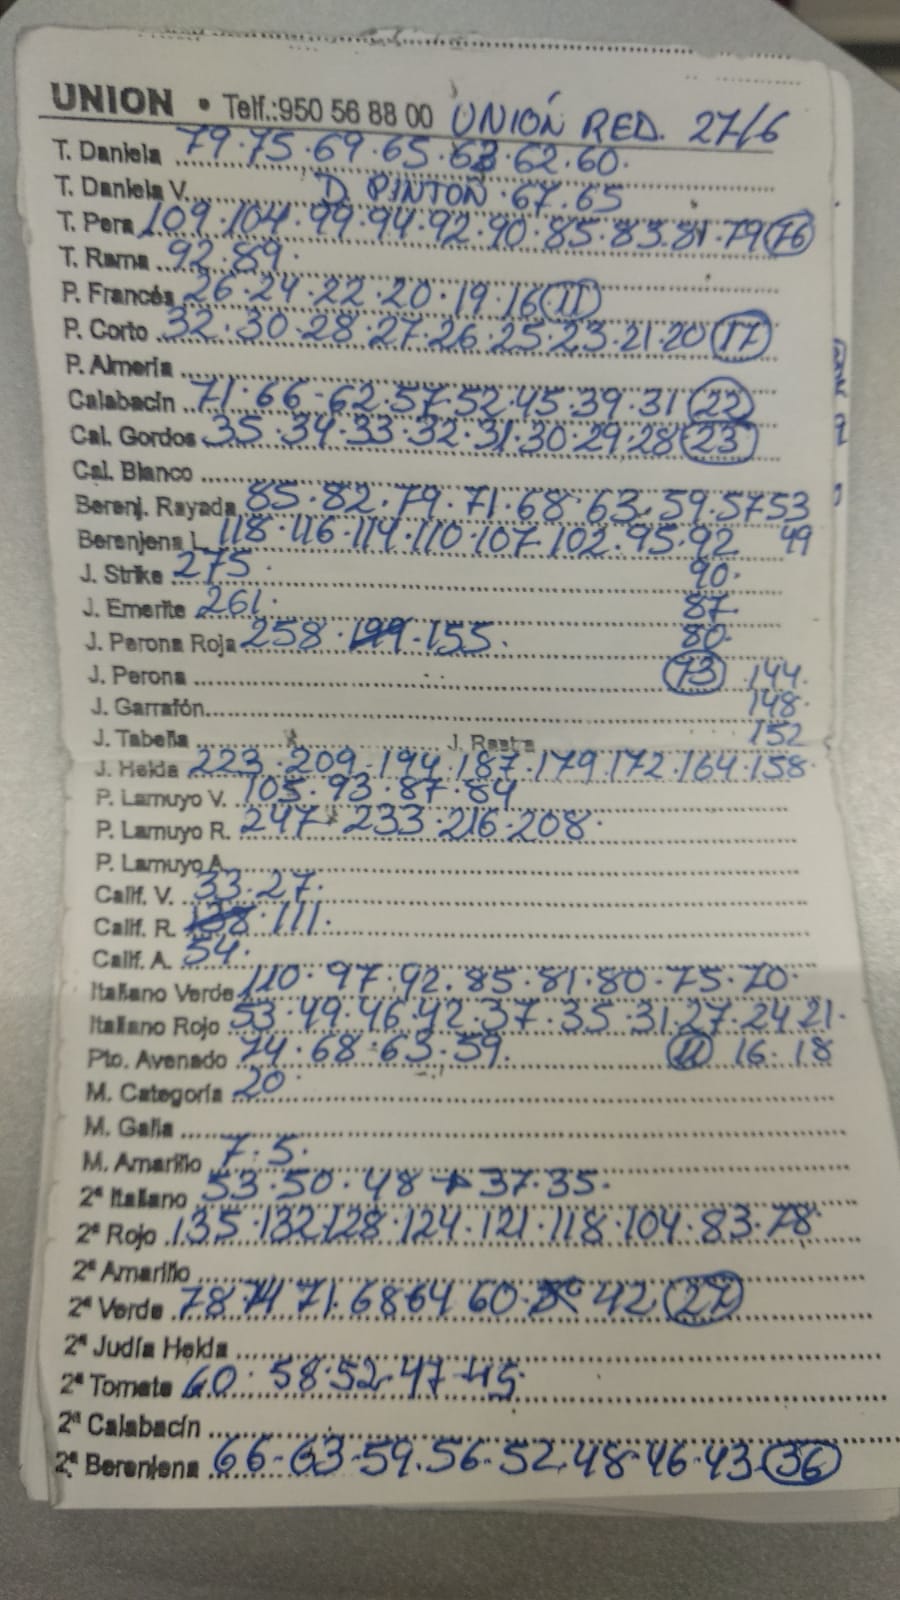 UNION • Telf.:950 56 88 00 UNIÓN RED. 27/6
T. Daniela 79·75·69·65·63·62·60·
T. Daniela V. D. PINTÓN·67·65
T. Pera 109·104·99·94·92·90·85·83·81·79 76
T. Rama 92·89·
P. Francés 26·24·22·20·19·16 11
P. Corto 32·30·28·27·26·25·23·21·20 17
P. Almería
Calabacín 71·66-62·57·52·45·39·31 22
Cal. Gordos 35·34·33·32·31·30·29·28 23
Cal. Blanco
Berenj. Rayada 85·82·79·71·68·63·59·57 53
Berenjena L. 118·116·114·110·107·102·95·92 49
J. Strike 275· 90·
J. Emerite 261· 87·
J. Perona Roja 258· 155· 80·
J. Perona 73 144·
J. Garrafón 148·
J. Tabella J. Rastra 152
J. Helda 223·209·194·187·179·172·164·158·
P. Lamuyo V. 105·93·87·84
P. Lamuyo R. 247·233·216·208·
P. Lamuyo A.
Calif. V. 33·27·
Calif. R. 138·111·
Calif. A. 54·
Italiano Verde 110·97·92·85·81·80·75·70·
Italiano Rojo 53·49·46·42·37·35·31·27·24 21·
Pto. Avenado 74·68·63·59· 11 16·18
M. Categoría 20·
M. Galia
M. Amarillo 7·5·
2ª Italiano 53·50·48 → 37·35·
2ª Rojo 135·132·128·124·121·118·104·83·78
2ª Amarillo
2ª Verde 78 74 71·68 64 60· 42 27
2ª Judía Helda
2ª Tomate 60·58·52·47·45·
2ª Calabacín
2ª Berenjena 66-63-59·56·52·48·46·43 36